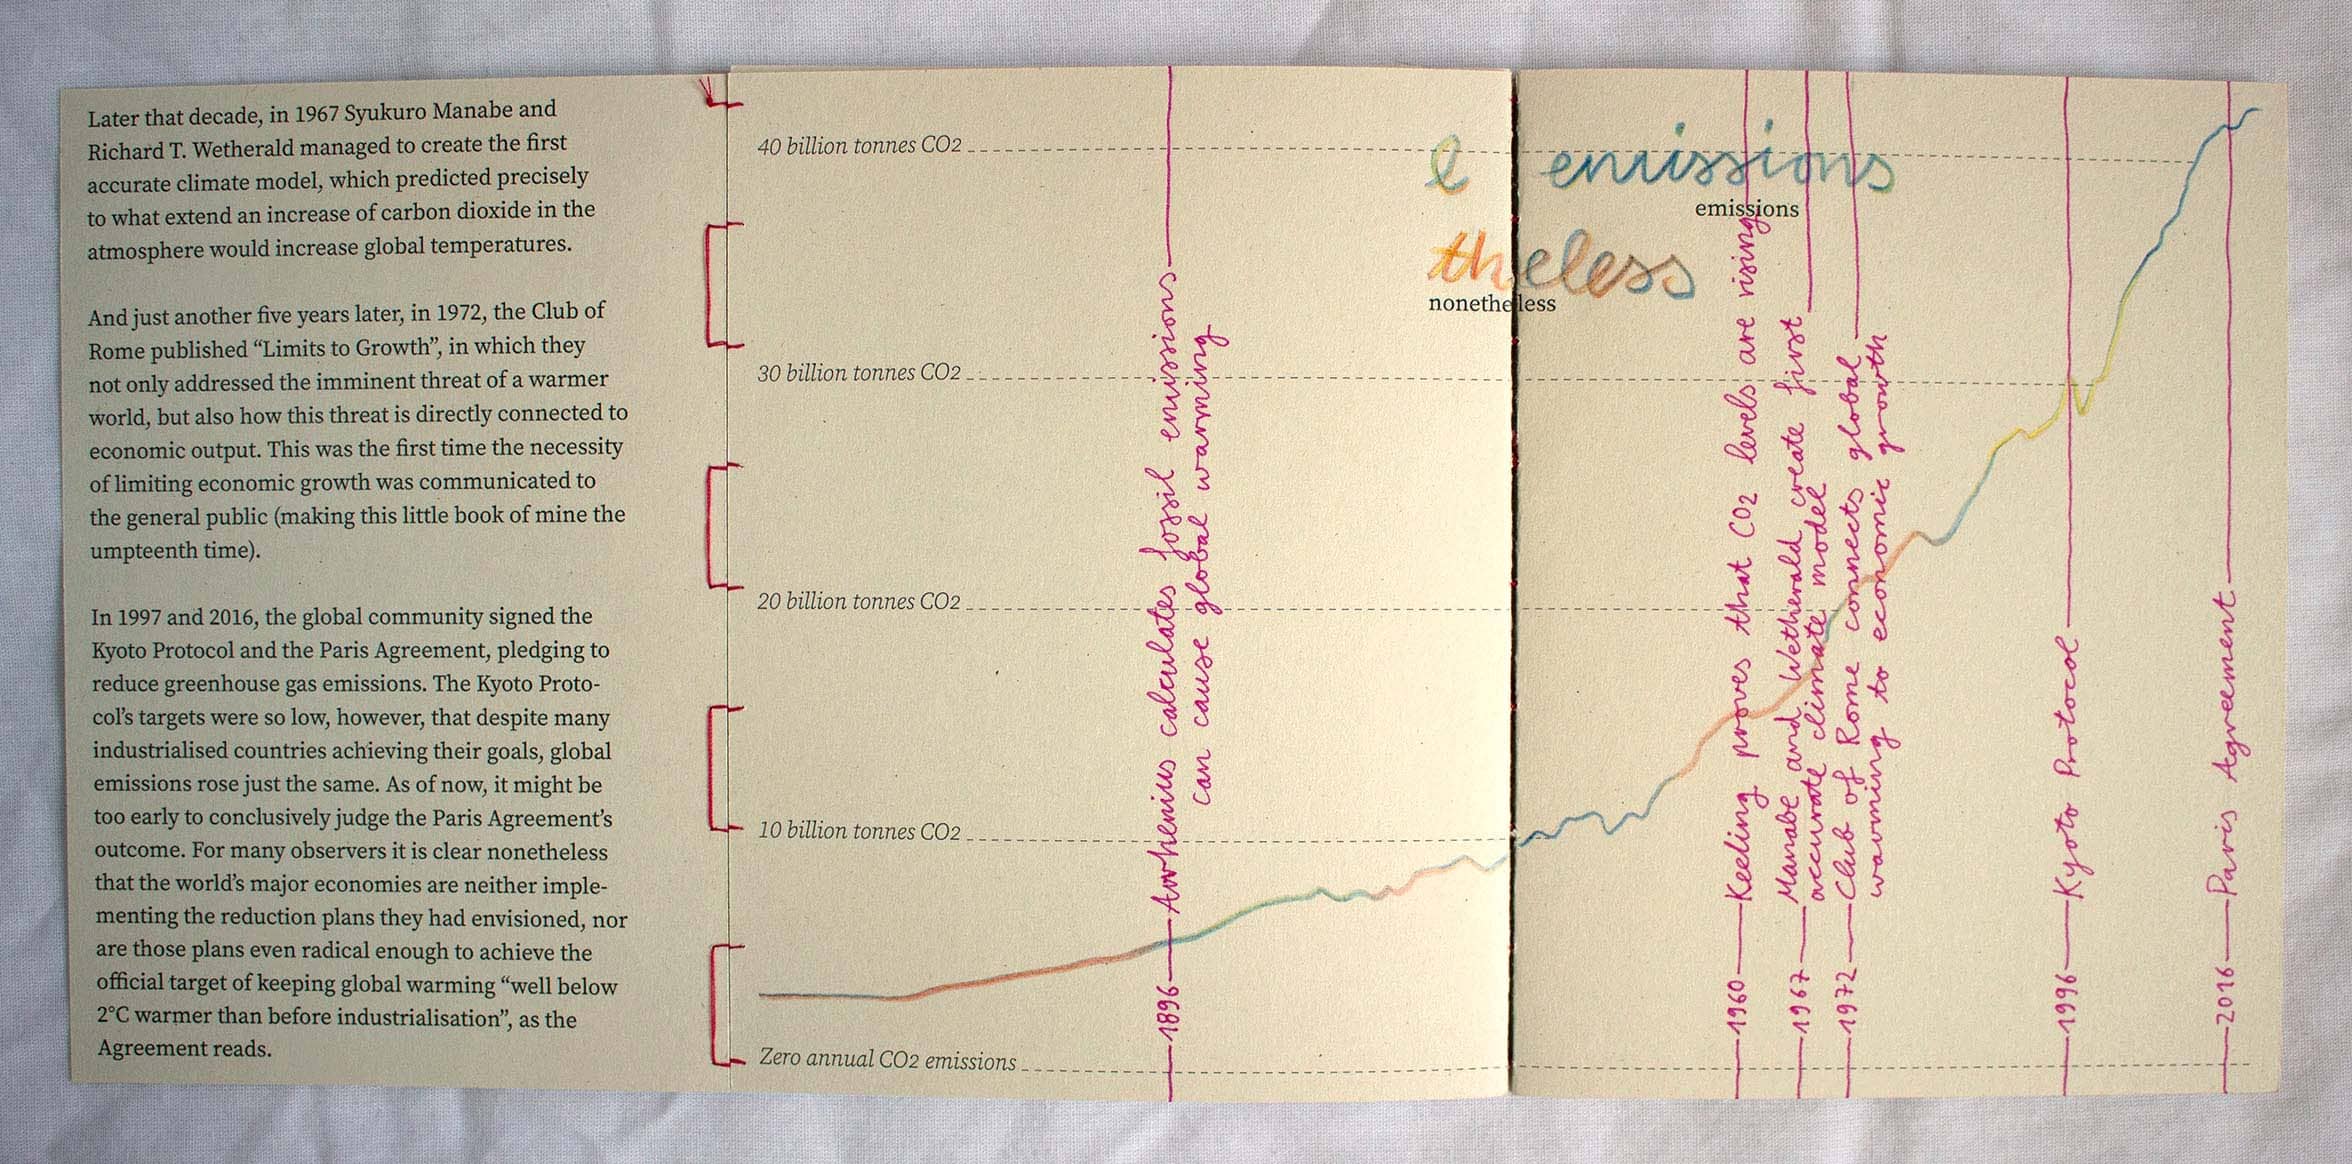 Later that decade, in 1967 Syukuro Manabe and
Richard T. Wetherald managed to create the first
accurate climate model, which predicted precisely
to what extend an increase of carbon dioxide in the
atmosphere would increase global temperatures.
And just another five years later, in 1972, the Club of
Rome published “Limits to Growth”, in which they
not only addressed the imminent threat of a warmer
world, but also how this threat is directly connected to
economic output. This was the first time the necessity
of limiting economic growth was communicated to
the general public (making this little book of mine the
umpteenth time).
In 1997 and 2016, the global community signed the
Kyoto Protocol and the Paris Agreement, pledging to
reduce greenhouse gas emissions. The Kyoto Proto-
col’s targets were so low, however, that despite many
industrialised countries achieving their goals, global
emissions rose just the same. As of now, it might be
too early to conclusively judge the Paris Agreement’s
outcome. For many observers it is clear nonetheless
that the world’s major economies are neither imple-
menting the reduction plans they had envisioned, nor
are those plans even radical enough to achieve the
official target of keeping global warming “well below
2°C warmer than before industrialisation”, as the
Agreement reads.
40 billion tonnes CO2
30 billion tonnes CO2
20 billion tonnes CO2
10 billion tonnes CO2
Zero annual CO2 emissions
l emissions
emissions
theless
nonetheless
1896 Arrhenius calculates fossil emissions
can cause global warming
1960 Keeling proves that CO2 levels are rising
1967 Manabe and Wetherald create first
accurate climate model
1972 Club of Rome connects global
warming to economic growth
1996 Kyoto Protocol
2016 Paris Agreement